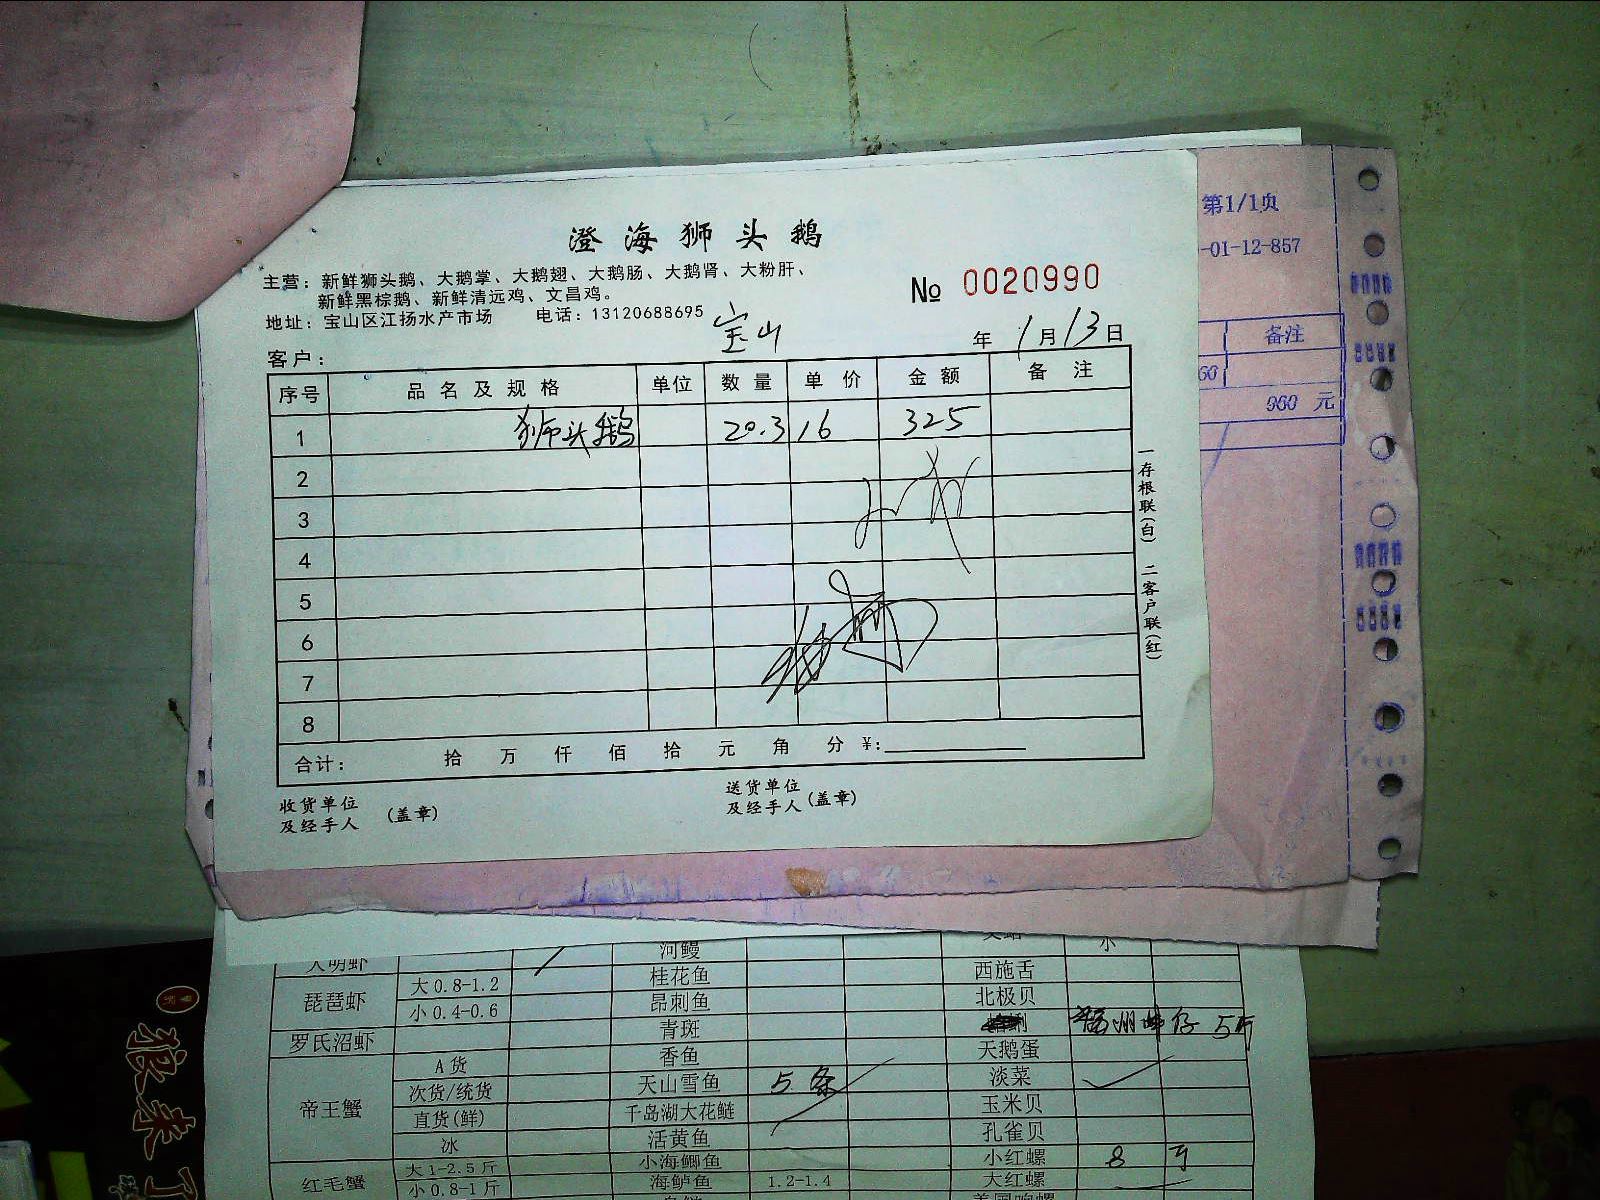 第1/1页
-01-12-857
备注
960 元
澄海狮头鹅
主营：新鲜狮头鹅、大鹅掌、大鹅翅、大鹅肠、大鹅肾、大粉肝、
新鲜黑棕鹅、新鲜清远鸡、文昌鸡。
地址：宝山区江扬水产市场 电话：13120688695
№ 0020990
客户： 宝山 年 1月13日
序号 品名及规格 单位 数量 单价 金额 备注
1 狮头鹅 20.3 16 325
2
3
4
5
6
7
8
合计： 拾 万 仟 佰 拾 元 角 分 ¥:
收货单位
及经手人 (盖章)
送货单位
及经手人 (盖章)
一存根联(白) 二客户联(红)
大明虾 河鳗 小
琵琶虾 大0.8-1.2 桂花鱼 西施舌
小0.4-0.6 昂刺鱼 北极贝
罗氏沼虾 青斑 5斤
帝王蟹 A货 香鱼 天鹅蛋
次货/统货 天山雪鱼 5条 淡菜
直货(鲜) 千岛湖大花鲢 玉米贝
冰 活黄鱼 孔雀贝
红毛蟹 大1-2.5斤 小海鲫鱼 小红螺 8斤
小0.8-1斤 海鲈鱼 1.2-1.4 大红螺
狼来了